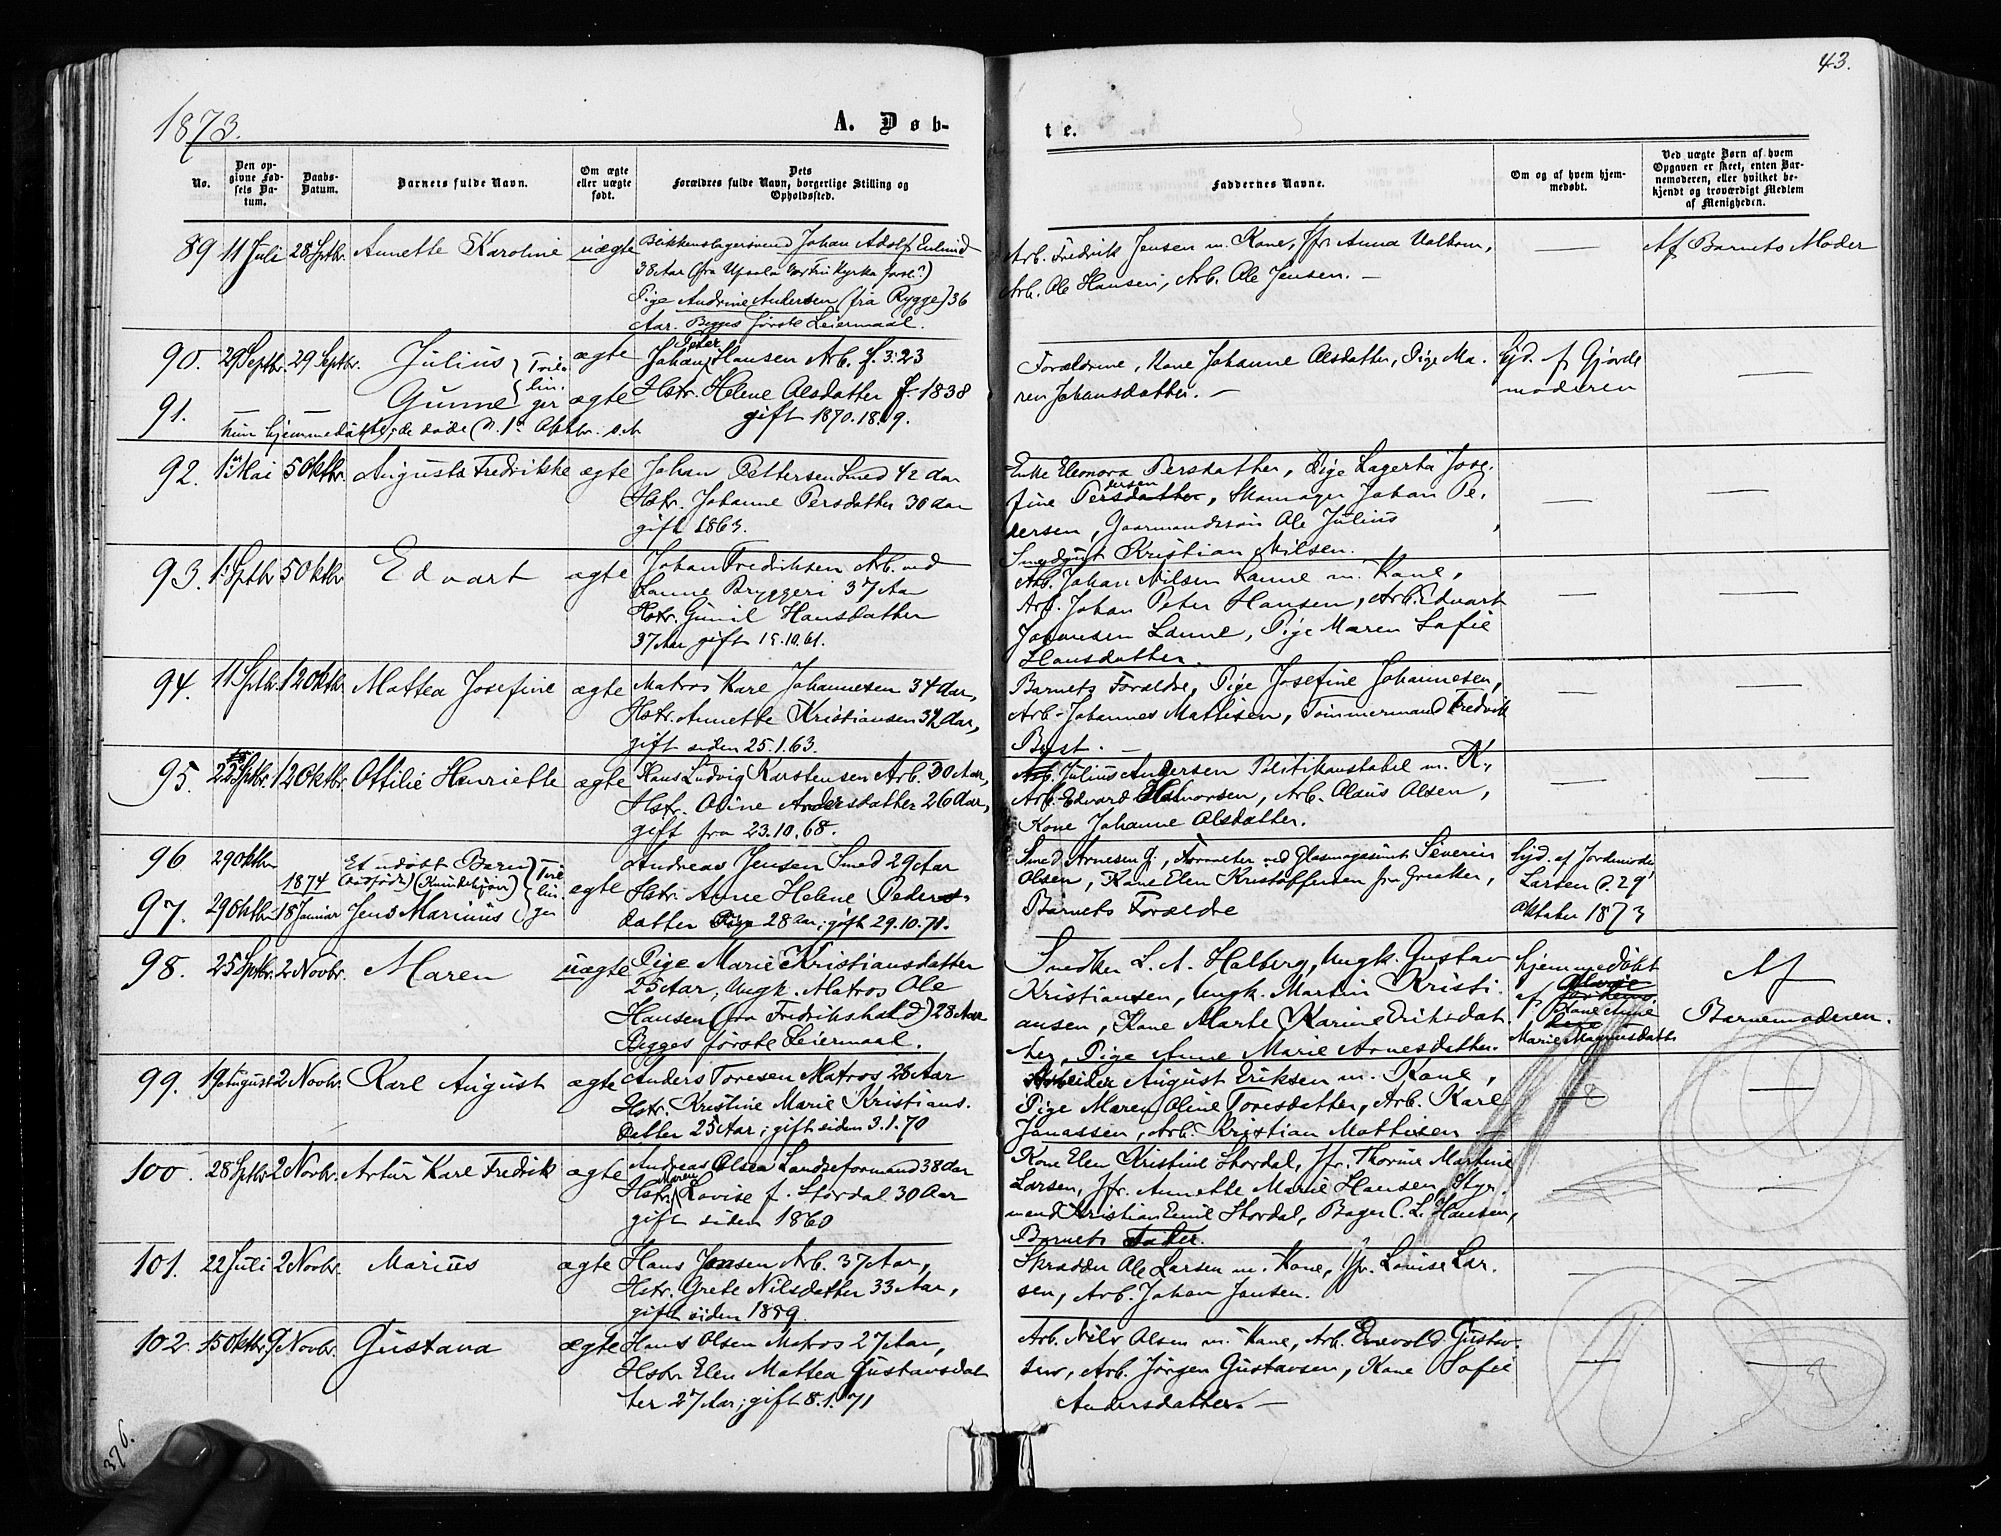 43.
1873.
A. Døb-
te.
No.
Den op-
givne Fød-
sels Da-
tum.
Daabs-
Datum.
Barnets fulde Navn.
Om ægte
eller uægte
født.
Dets
Forældres fulde Navn, borgerlige Stilling og
Opholdssted.
Faddernes Navne.
Om og af hvem hjem-
medøbt.
Ved uægte Børn af hvem
Opgaven er skeet, enten Bar-
nemoderen, eller hvilket be-
kjendt og troværdigt Medlem
af Menigheden.
89 11 Juli 28 Septbr. Annette Karoline uægte
Blikkenslagersvend Johan Adolf
38 Aar (fra Upsala
Pige Andrine Andersen (fra Rygge) 36
Aar. Begges første Leiermaal.
Arb. Fredrik Jensen m. Kone, Jfr. Anna
Arb. Ole Hansen, Arb. Ole Jensen. –
—
Af Barnets Moder
90. 29 Septbr. 29 Septbr. Julius Tvil-
lin-
91. — — Gunne ger
ægte
ægte
Peter
Johan Hansen Arb. f. 3: 23
Hstr. Helene Olsdatter f. 1838
gift 1870. 18.9.
Forældrene, Kone Johanne Olsdatter, Pige Ma-
ren Johansdatter. –
Hjd. af Gjorde
moderen
—
92. 1 Mai 5 Oktbr. Augusta Fredrikke ægte
Johan Pettersen Smed 42 Aar
Hstr. Johanne Persdatter 30 Aar
gift 1863.
Enke Eleonora Persdatter, Pige Lagerta Jose-
fine Persdatter, Skomager Johan Pe-
dersen, Gaarmandssøn Ole Julius
Kristian Nilsen.
—
—
93. 1 Septbr 5 Oktbr Edvart ægte
Johan Fredriksen Arb. ved
Sanne Bryggeri 37 Aar
Hstr. Gunil Hansdatter
37 Aar gift 15.10.61.
Arb. Johan Nilsen Sanne m. Kone,
Arb. Johan Peter Hansen, Arb. Edvart
Johansen Sanne, Pige Maren Sofie
Hansdatter.
—
—
94. 11 Septbr. 12 Oktbr Mattea Josefine ægte
Matros Karl Johannesen 34 Aar,
Hstr. Annette Kristiansen 32 Aar,
gift siden 25.1.63.
Barnets Forældre, Pige Josefine Johannesen,
Arb. Johannes Mattisen, Tømmermand Fredrik
—
—
95. 22 Septbr. 12 Oktbr. Ottilie Henriette ægte
Hans Ludvig Karstensen Arb. 30 Aar,
Hstr. Oline Andersdatter 26 Aar,
gift fra 23.10.68.
Arb. Julius Andersen Politikonstabel m. K.,
Arb. Edvard Halvorsen, Arb. Olaus Olsen,
Kone Johanne Olsdatter.
—
—
96 29 Oktbr Et udøbt Barn
(dødfødt) (Kvindekjøn)
Tvil-
lin-
ger
1874
97. 29 Oktbr. 18 Januar Jens Marinus
ægte
Andreas Jensen Smed 29 Aar
Hstr. Anne Helene Peders-
datter 28 Aar; gift 29.10.71.
Smed Arnesen G., Formester ved Glasmagasinet Severin
Olsen, Kone Elen Kristoffersen fra Greaker,
Barnets Forældre
Hjd. af Jordemoder
Larsen d. 29
Oktober 1873
98. 25 Septbr. 2 Novbr. Maren uægte
Pige Marie Kristiansdatter
25 Aar, Ungk. Matros Ole
Hansen (fra Fredrikshald) 28 Aar
Begges første Leiermaal.
Snedker L. A. Halberg, Ungk. Gustav
Kristiansen, Ungk. Martin Kristi-
ansen, Kone Marte Karine Eriksdat-
ter, Pige Anne Marie Arnesdatter.
hjemmedøbt
af
Kone Anne
Marie Magnusdatter
Af
Barnemoderen.
99. 19 August 2 Novbr. Karl August ægte
Anders Toresen Matros 28 Aar
Hstr. Kristine Marie Kristians-
datter 25 Aar; gift siden 3.1.70
Arbeider August Eriksen m. Kone,
Pige Maren Oline Toresdatter, Arb. Karl
Jonassen, Arb. Kristian Mattisen –
—
—
100. 28 Septbr 2 Novbr. Artur Karl Fredrik ægte
Andreas Olsen Landseformand 38 Aar
Maren
Hstr. Lovise f. Stordal 30 Aar
gift siden 1860
Kone Elen Kristine Stordal, Jfr. Thorine Martine
Larsen, Jfr. Annette Marie Hansen, Styr-
mand Kristian Emil Stordal, Bager C. L. Hansen,
Barnets Fader.
—
—
101. 22 Juli 2 Novbr. Marius ægte
Hans Jensen Arb. 37 Aar,
Hstr. Grete Nilsdatter 33 Aar,
gift siden 1859.
Skrædder Ole Larsen m. Kone, Jfr. Louise Lar-
sen, Arb. Johan Jansen.
—
—
102. 15 Oktbr. 9 Novbr. Gustava ægte
Hans Olsen Matros 27 Aar,
Hstr. Elen Mattea Gustavsdat-
ter 27 Aar; gift 8.1.71
Arb. Nils Olsen m. Kone, Arb. Enevold Gustav-
sen, Arb. Jørgen Gustavsen, Kone Sofie
Andersdatter. –
—
—
376.